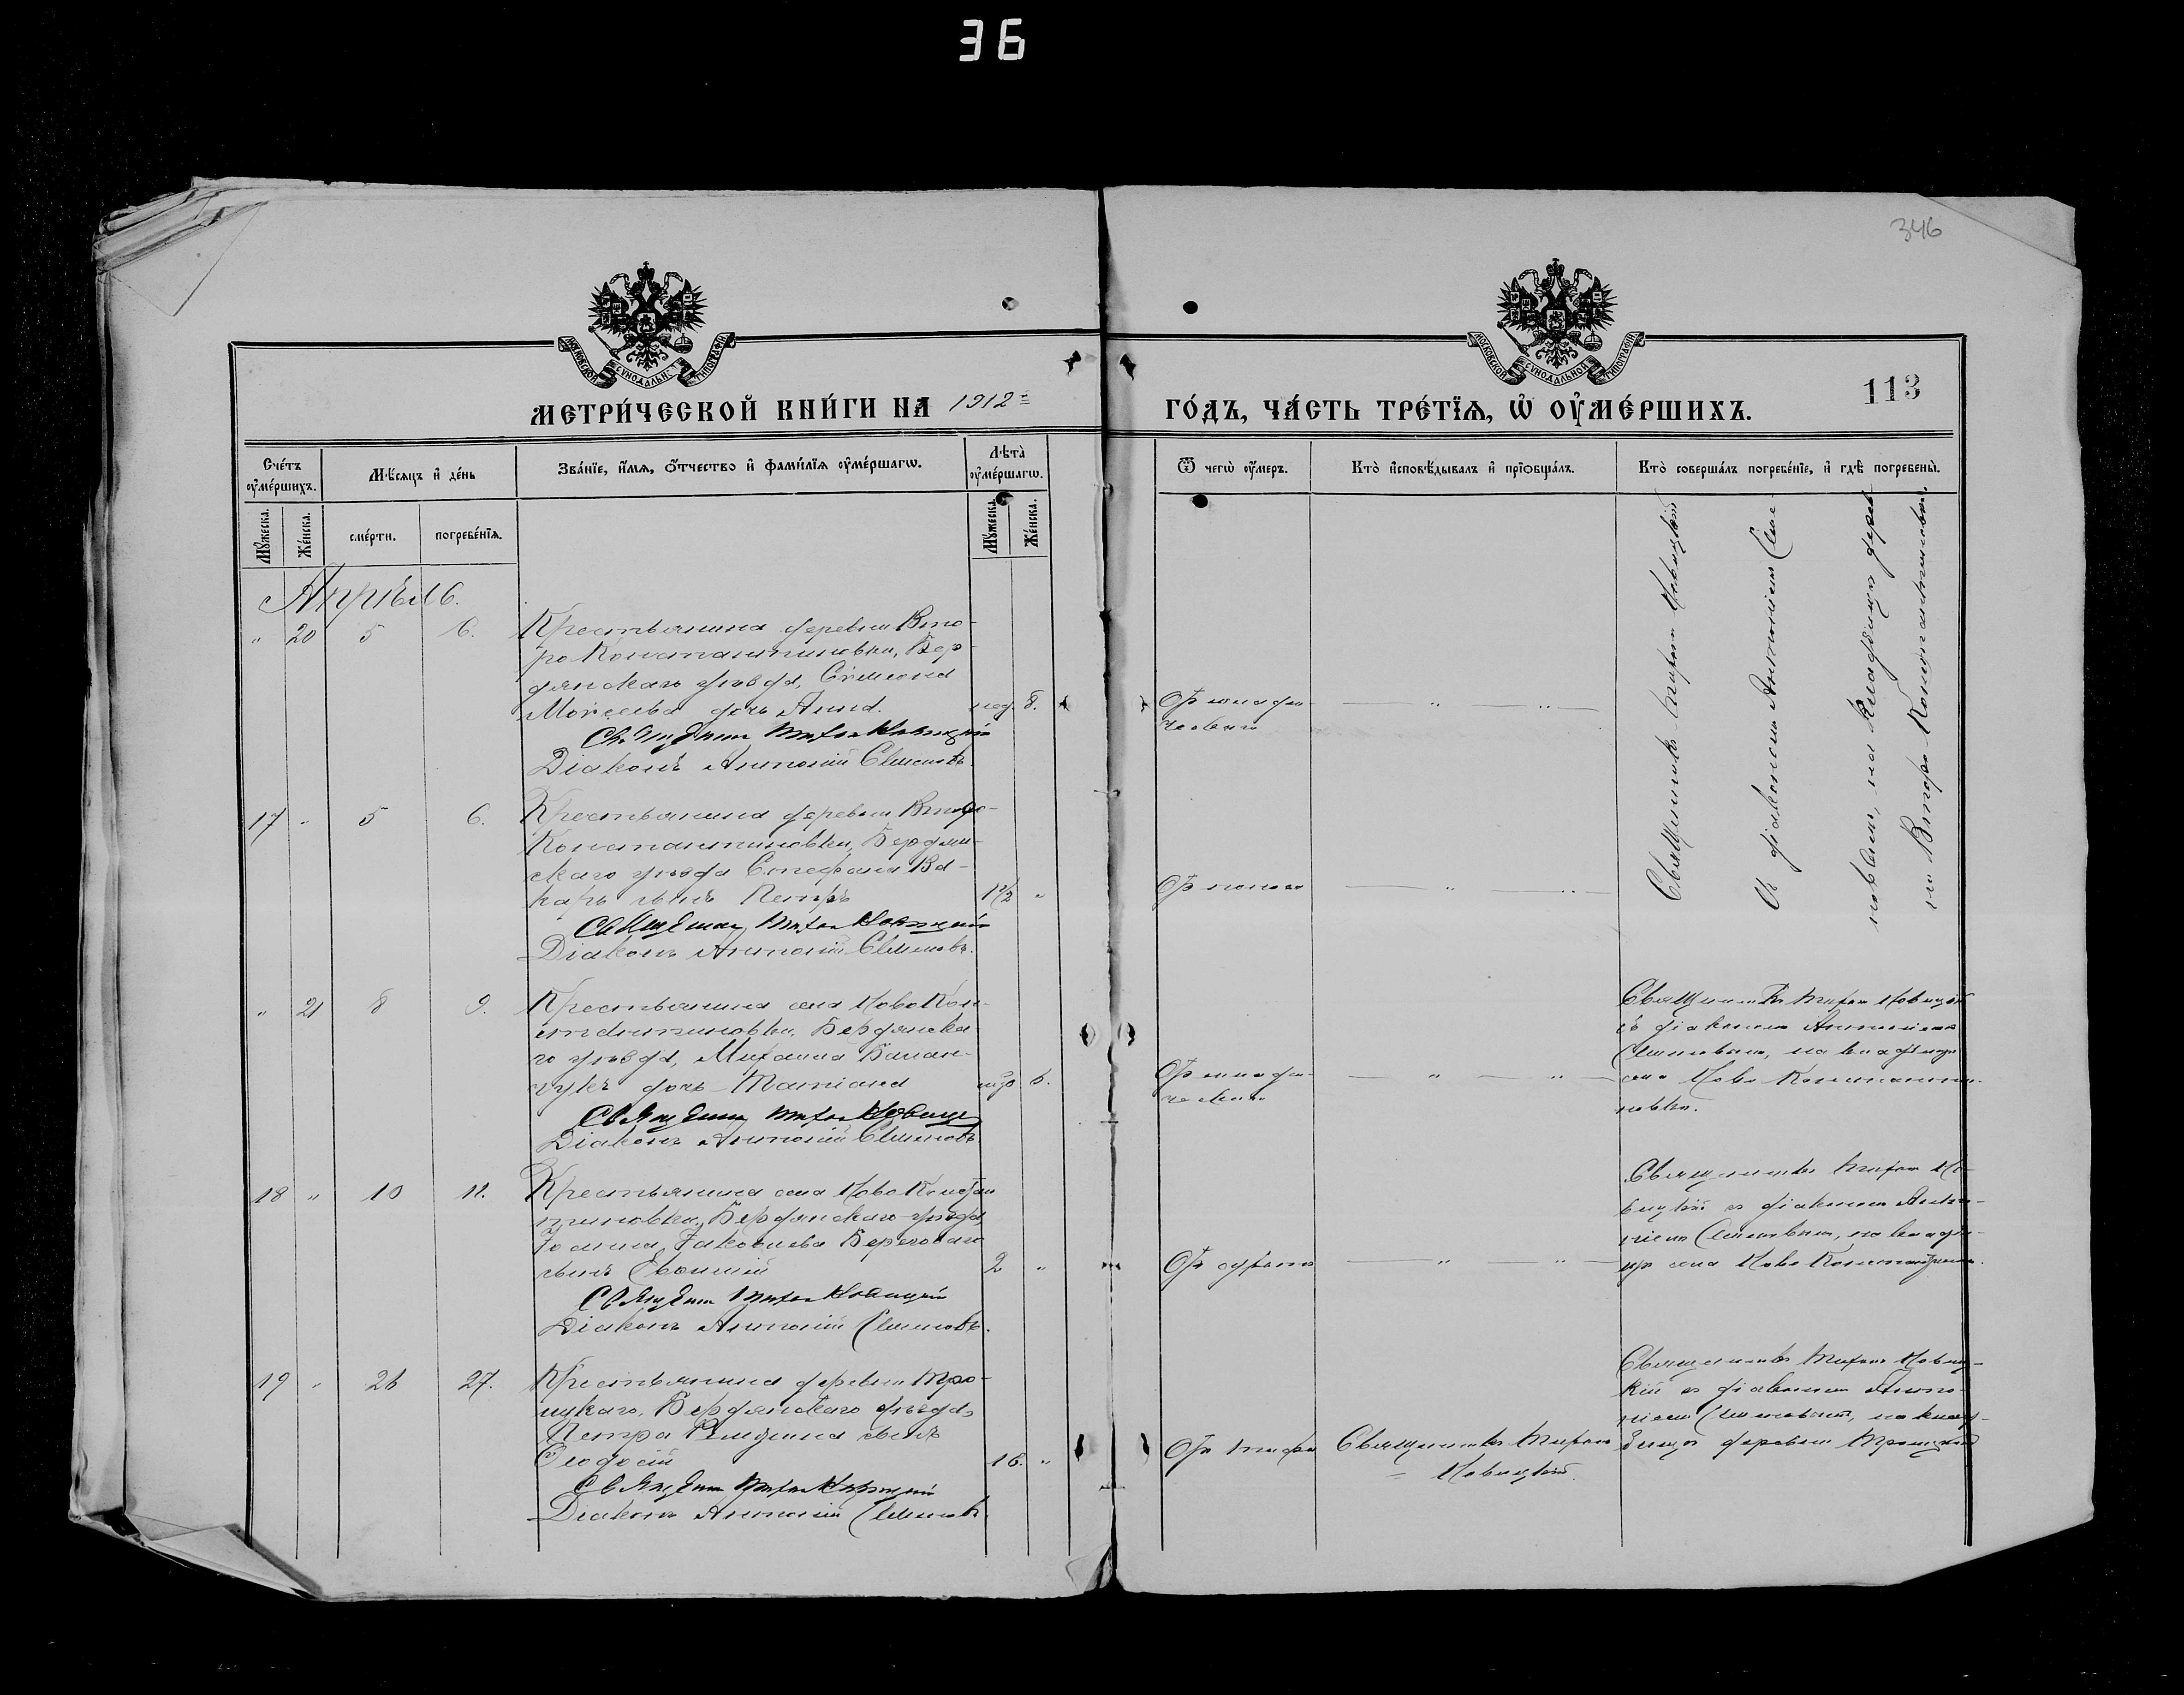 36
346
МОСКОВСКОЙ СѴНОДАЛЬНОЙ ТИПОГРАФІИ
МОСКОВСКОЙ СѴНОДАЛЬНОЙ ТИПОГРАФІИ
113
МЕТРИ́ЧЕСКОЙ КНИ́ГИ НА 1912 ГО́ДЪ, ЧА́СТЬ ТРЕ́ТЇѦ, Ѡ҆ ОУ҆МЕ́РШИХЪ.
Сче́тъ оу҆ме́ршихъ.
Мꙋ́жеска.
Же́нска.
М҆ѣсѧцъ и҆ де́нь
сме́рти.
погребе́нїѧ.
Зва́нїе, и҆́мѧ, ѻ҆́тчество и҆ фами́лїѧ оу҆ме́ршагѡ.
Лѣ́та̀ оу҆ме́ршагѡ.
Мꙋ́жеска.
Же́нска.
Ѿ чегѡ̀ оу҆́меръ.
Кто̀ и҆сповѣ́дывалъ и҆ прїѻбща́лъ.
Кто̀ соверша́лъ погребе́нїе, и҆ гдѣ̀ погребены̀.
Апрѣль.
" 20 5 6.
Крестьянина деревни Вто-
ро Константиновки, Бер-
дянскаго уѣзда, Симеона
Моисеева дочь Анна. 8.
Священникъ Тихонъ Новицкій
Діаконъ Антоній Семеновъ.
Священникъ Тихонъ Новицкій
съ діакономъ Антоніемъ Семе-
новымъ, на кладбищѣ дерев-
ни Второ-Константиновки.
17 " 5 6.
Крестьянина деревни Второ-
Константиновки, Бердян-
скаго уѣзда Стефана Ва-
каръ сынъ Петръ 1½ "
Священникъ Тихонъ Новицкій
Діаконъ Антоній Семеновъ.
" 21 8 9.
Крестьянина села Ново Кон-
стантиновки, Бердянска-
го уѣзда, Михаила
дочь Татіана 6.
Священникъ Тихонъ Новицкій
Діаконъ Антоній Семеновъ
Священникъ Тихонъ Новицкій
съ діакономъ Антоніемъ
Семеновымъ, на кладбищѣ
села Ново Константи-
новки.
18 " 10 11.
Крестьянина села Ново Констан
тиновки, Бердянскаго уѣзда,
Іаковлева
сынъ 2 "
Священникъ Тихонъ Новицкій
Діаконъ Антоній Семеновъ.
Священникъ Тихонъ Но-
вицкій съ діакономъ Анто-
ніемъ Семеновымъ, на кладби-
щѣ села Ново Константиновки.
19 " 26 27.
Крестьянина деревни Тро-
ицкаго, Бердянскаго уѣзда,
Петра сынъ
Ѳеодосій 16. "
Священникъ Тихонъ Новицкій
Діаконъ Антоній Семеновъ
Отъ тифа
Священникъ Тихонъ
Новицкій.
Священникъ Тихонъ Новиц-
кій съ діакономъ Анто-
ніемъ Семеновымъ, на клад-
бищѣ деревни Троицкой